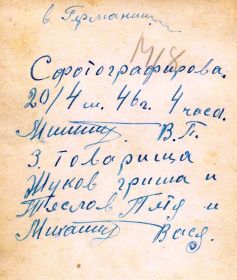 в Германии
М18
Сфотографирова.
20/4 м. 46 г. 4 часа.
В. П.
3. товарища
Жуков гриша и
Теслов Петя и
Вася.